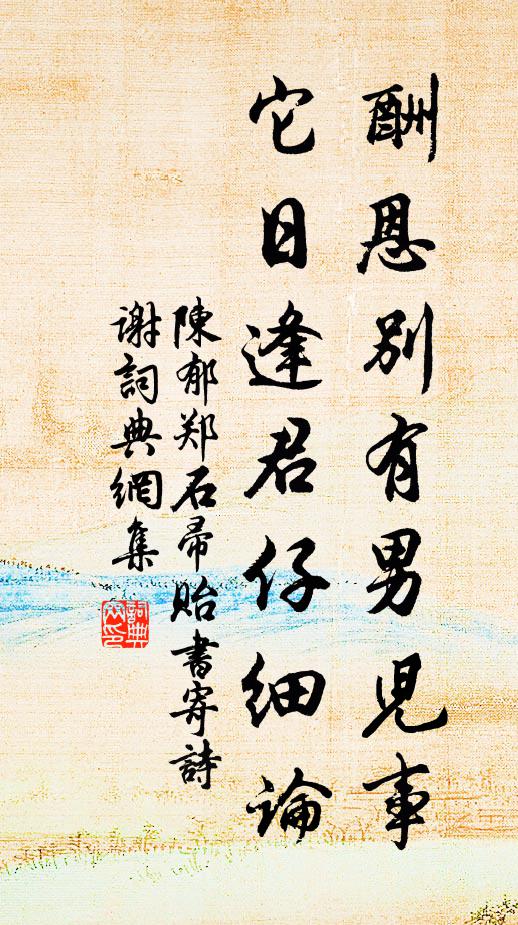 酬恩别有男児事
它日逢君仔細論
陳郁郑石帚貽書寄詩
謝詞典網集
詞典